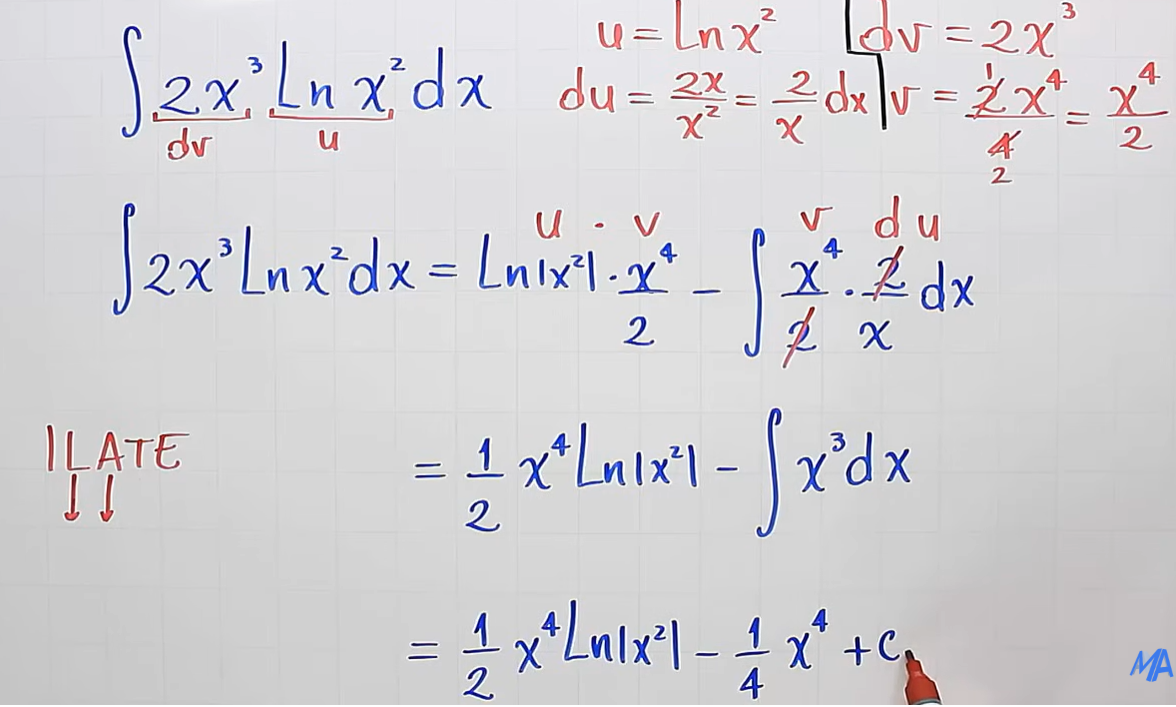 ∫ 2x³ Ln x² dx
dv u
u = Ln x² dv = 2x³
du = 2x/x² = 2/x dx v = 2x⁴/4 = x⁴/2
1
2
u · v v du
∫ 2x³ Ln x² dx = Ln|x²| · x⁴/2 − ∫ x⁴/2 · 2/x dx
ILATE
= 1/2 x⁴ Ln|x²| − ∫ x³ dx
= 1/2 x⁴ Ln|x²| − 1/4 x⁴ + c
MA